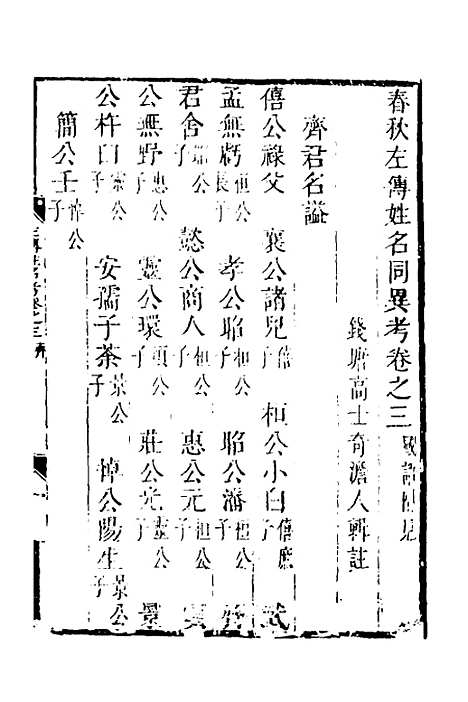 春秋左傳姓名同異考卷之三
錢塘高士奇澹人輯註
齊君名謚
僖公祿父 襄公諸兒僖公子 桓公小白僖庶子 武
孟無虧桓公長子 孝公昭桓公子 昭公潘桓公子 齊
君舍昭公子 懿公商人桓公子 惠公元桓公子 頃
公無野惠公子 靈公環頃公子 莊公光靈公子 景
公杵臼靈公子 安孺子荼景公子 悼公陽生景公子
簡公壬悼公子